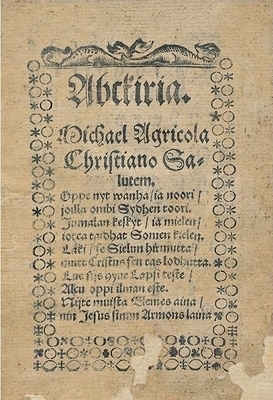 Abckiria.
Michael Agricola
Christiano Sa-
lutem.
Oppe nyt wanha/ia noori/
joilla ombi Sydhen toori.
Jumalan keskyt/ia mielen/
iotca taidhat Somen kielen.
Laki/se Sielun hirmutta/
mutt Cristus sen tas lodhutta.
Lue sijs hyue Lapsi teste/
Alcu oppi ilman este.
Nijte muista Elemes aina/
nin Jesus sinun Armons laina